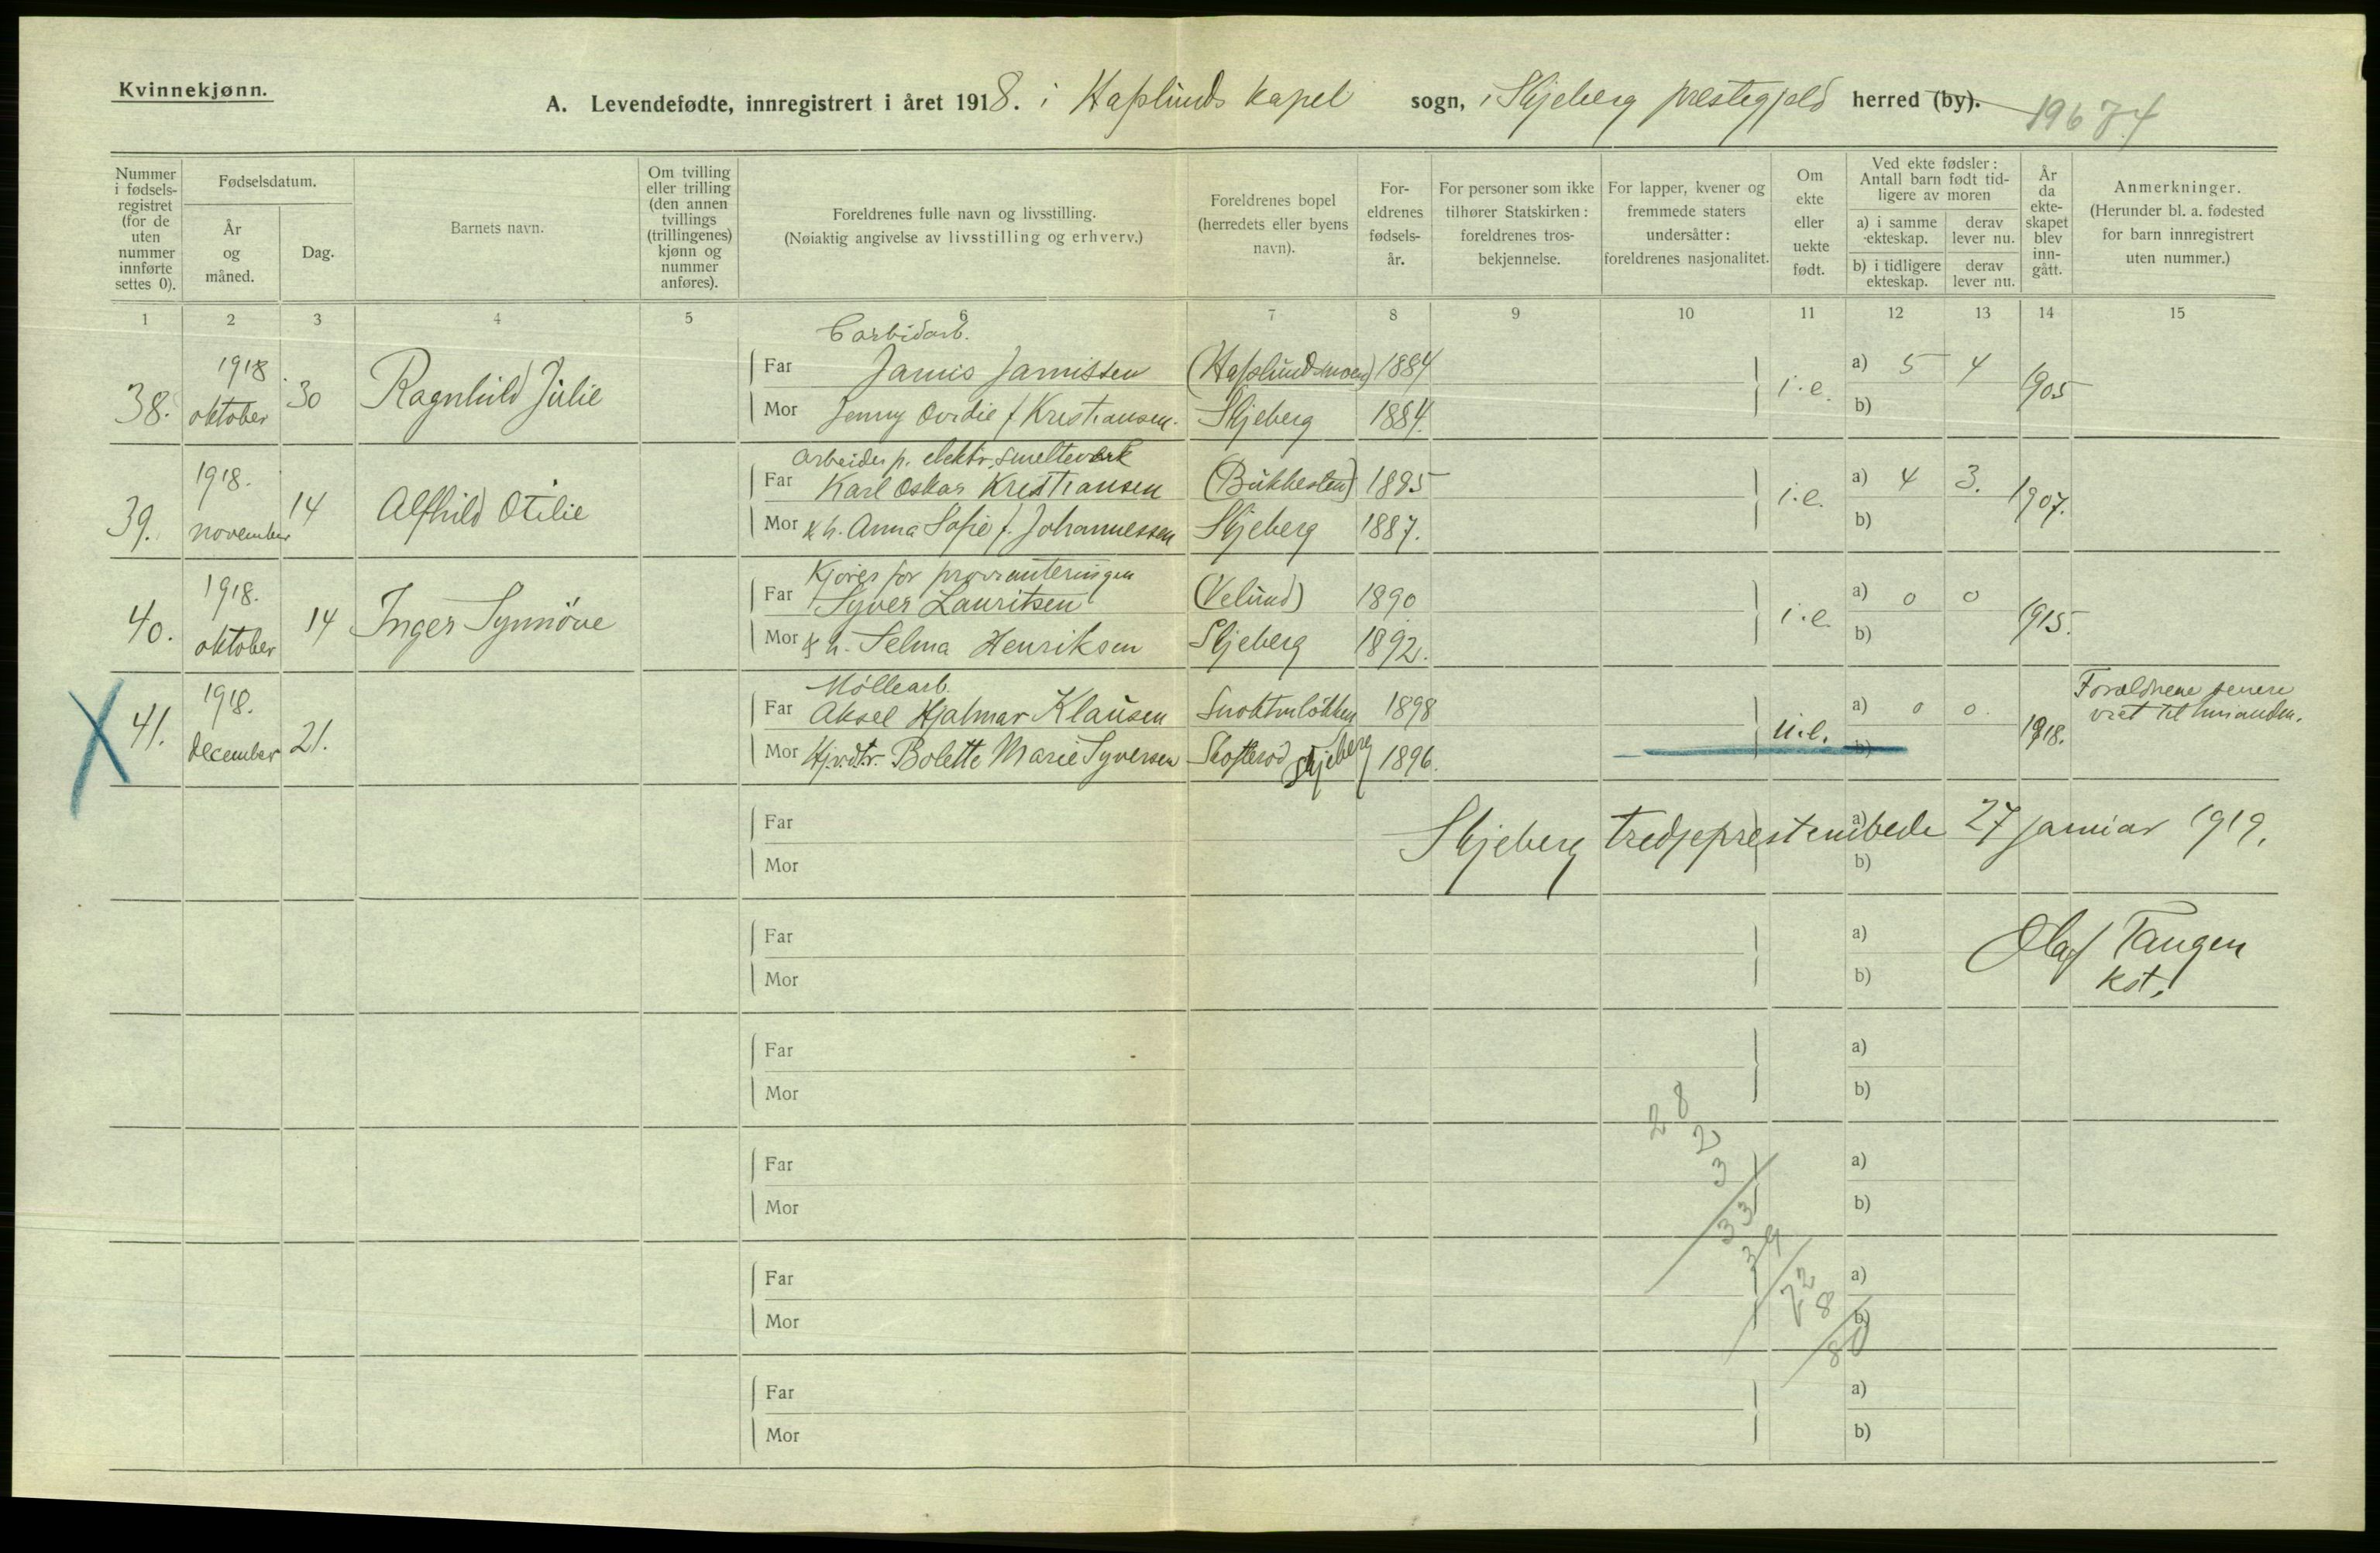 Kvinnekjønn.
A. Levendefødte, innregistrert i året 1918. i Hafslunds kapel sogn, i Skjeberg prestegjeld herred (by).
Nummer i fødselsregistret (for de uten nummer innførte settes 0).
Fødselsdatum.
År og måned.
Dag.
Barnets navn.
Om tvilling eller trilling (den annen tvillings (trillingenes) kjønn og nummer anføres).
Foreldrenes fulle navn og livsstilling.
(Nøiaktig angivelse av livsstilling og erhverv.)
Foreldrenes bopel (herredets eller byens navn).
Foreldrenes fødselsår.
For personer som ikke tilhører Statskirken: foreldrenes trosbekjennelse.
For lapper, kvener og fremmede staters undersåtter: foreldrenes nasjonalitet.
Om ekte eller uekte født.
Ved ekte fødsler: Antall barn født tidligere av moren
a) i samme ekteskap.
derav lever nu.
b) i tidligere ekteskap.
derav lever nu.
År da ekteskapet blev inngått.
Anmerkninger.
(Herunder bl. a. fødested for barn innregistrert uten nummer.)
1 2 3 4 5 6 7 8 9 10 11 12 13 14 15
Carbidarb.
38. 1918 oktober 30 Ragnhild Julie Far Jamis Jamissen (Hafslundmoen) 1884 i.e. a) 5 4 1905
Mor Jenny Ovidie f. Kristiansen. Skjeberg 1884. b)
Arbeider p. elektr. smelteverk
39. 1918. november 14 Alfhild Otilie Far Karl Oskar Kristiansen (Bukkesten) 1885 i.e. a) 4 3. 1907.
Mor & h. Anna Sofie f. Johannessen Skjeberg 1887. b)
Kjører for provianteringen
40. 1918. oktober 14 Inger Synnöve Far Syver Lauritsen (Velund) 1890 i.e. a) 0 0 1915.
Mor & h. Selma Henriksen Skjeberg 1892. b)
Møllearb.
41. 1918. december 21. Far Aksel Hjalmar Klausen 1898 u.e. a) 0 0 1918. Forældrene senere viet til hinanden.
Mor Bolette Marie Syversen Skjeberg 1896. b)
Far a)
Mor b)
Skjeberg tredjeprestembede 27 januar 1919.
Far a)
Mor b)
Olaf Tangen
kst.
Far a)
Mor b)
28
2
3
Far a)
Mor b)
33
39
Far a)
Mor b)
72
8
80
Far a)
Mor b)